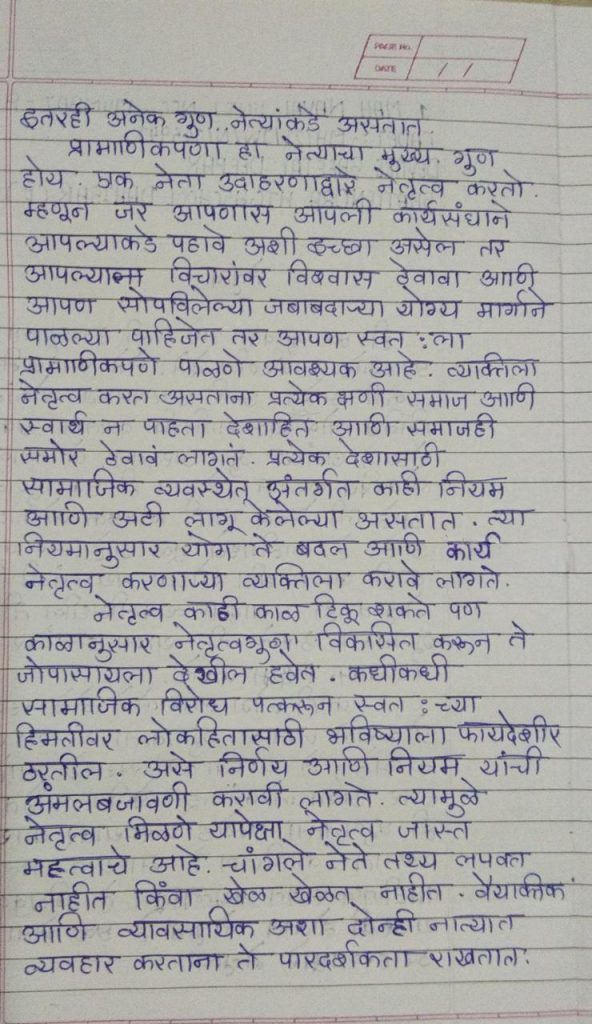 PAGE No.
DATE / /
इतरही अनेक गुण नेत्यांकडे असतात.
प्रामाणिकपणा हा नेत्याचा मुख्य गुण
होय. एक नेता उदाहरणाद्वारे नेतृत्व करतो.
म्हणून जर आपणास आपली कार्यसंघाने
आपल्याकडे पहावे अशी इच्छा असेल तर
आपल्या विचारांवर विश्वास ठेवावा आणि
आपण सोपविलेल्या जबाबदाऱ्या योग्य मार्गाने
पाळल्या पाहिजेत तर आपण स्वत:ला
प्रामाणिकपणे पाळणे आवश्यक आहे. व्यक्तिला
नेतृत्व करत असताना प्रत्येक क्षणी समाज आणि
स्वार्थ न पाहता देशहित आणि समाजही
समोर ठेवावं लागतं. प्रत्येक देशासाठी
सामाजिक व्यवस्थेत अंतर्गत काही नियम
आणि अटी लागू केलेल्या असतात. त्या
नियमानुसार योग ते बदल आणि कार्य
नेतृत्व करणाऱ्या व्यक्तिला करावे लागते.
नेतृत्व काही काळ टिकू शकते पण
काळानुसार नेतृत्वगुण विकसित करून ते
जोपासायला देखील हवेत. कधीकधी
सामाजिक विरोध पत्करून स्वत:च्या
हिमतीवर लोकहितासाठी भविष्याला फायदेशीर
ठरतील. असे निर्णय आणि नियम यांची
अंमलबजावणी करावी लागते. त्यामुळे
नेतृत्व मिळणे यापेक्षा नेतृत्व जास्त
महत्वाचे आहे. चांगले नेते तथ्य लपवत
नाहीत किंवा खेळ खेळत नाहीत. वैयक्तिक
आणि व्यावसायिक अशा दोन्ही नात्यात
व्यवहार करताना ते पारदर्शकता राखतात.